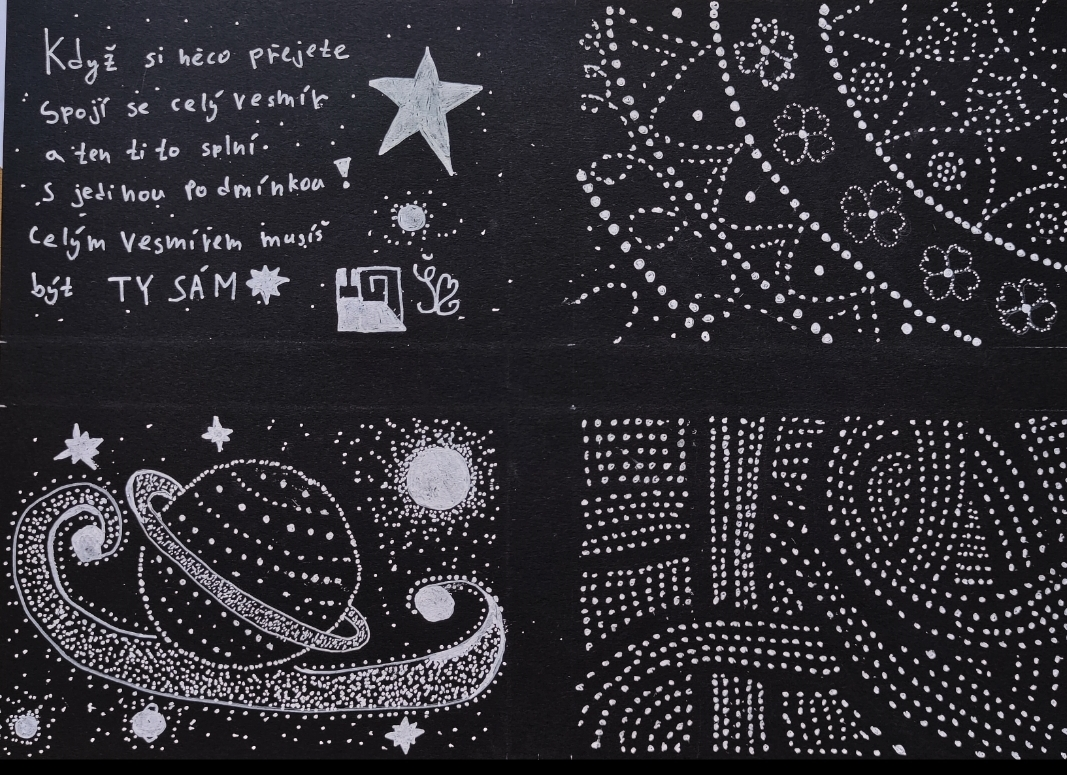 Když si něco přejete
Spojí se celý vesmír
a ten ti to splní.
S jedinou podmínkou !
Celým vesmírem musíš
být TY SÁM